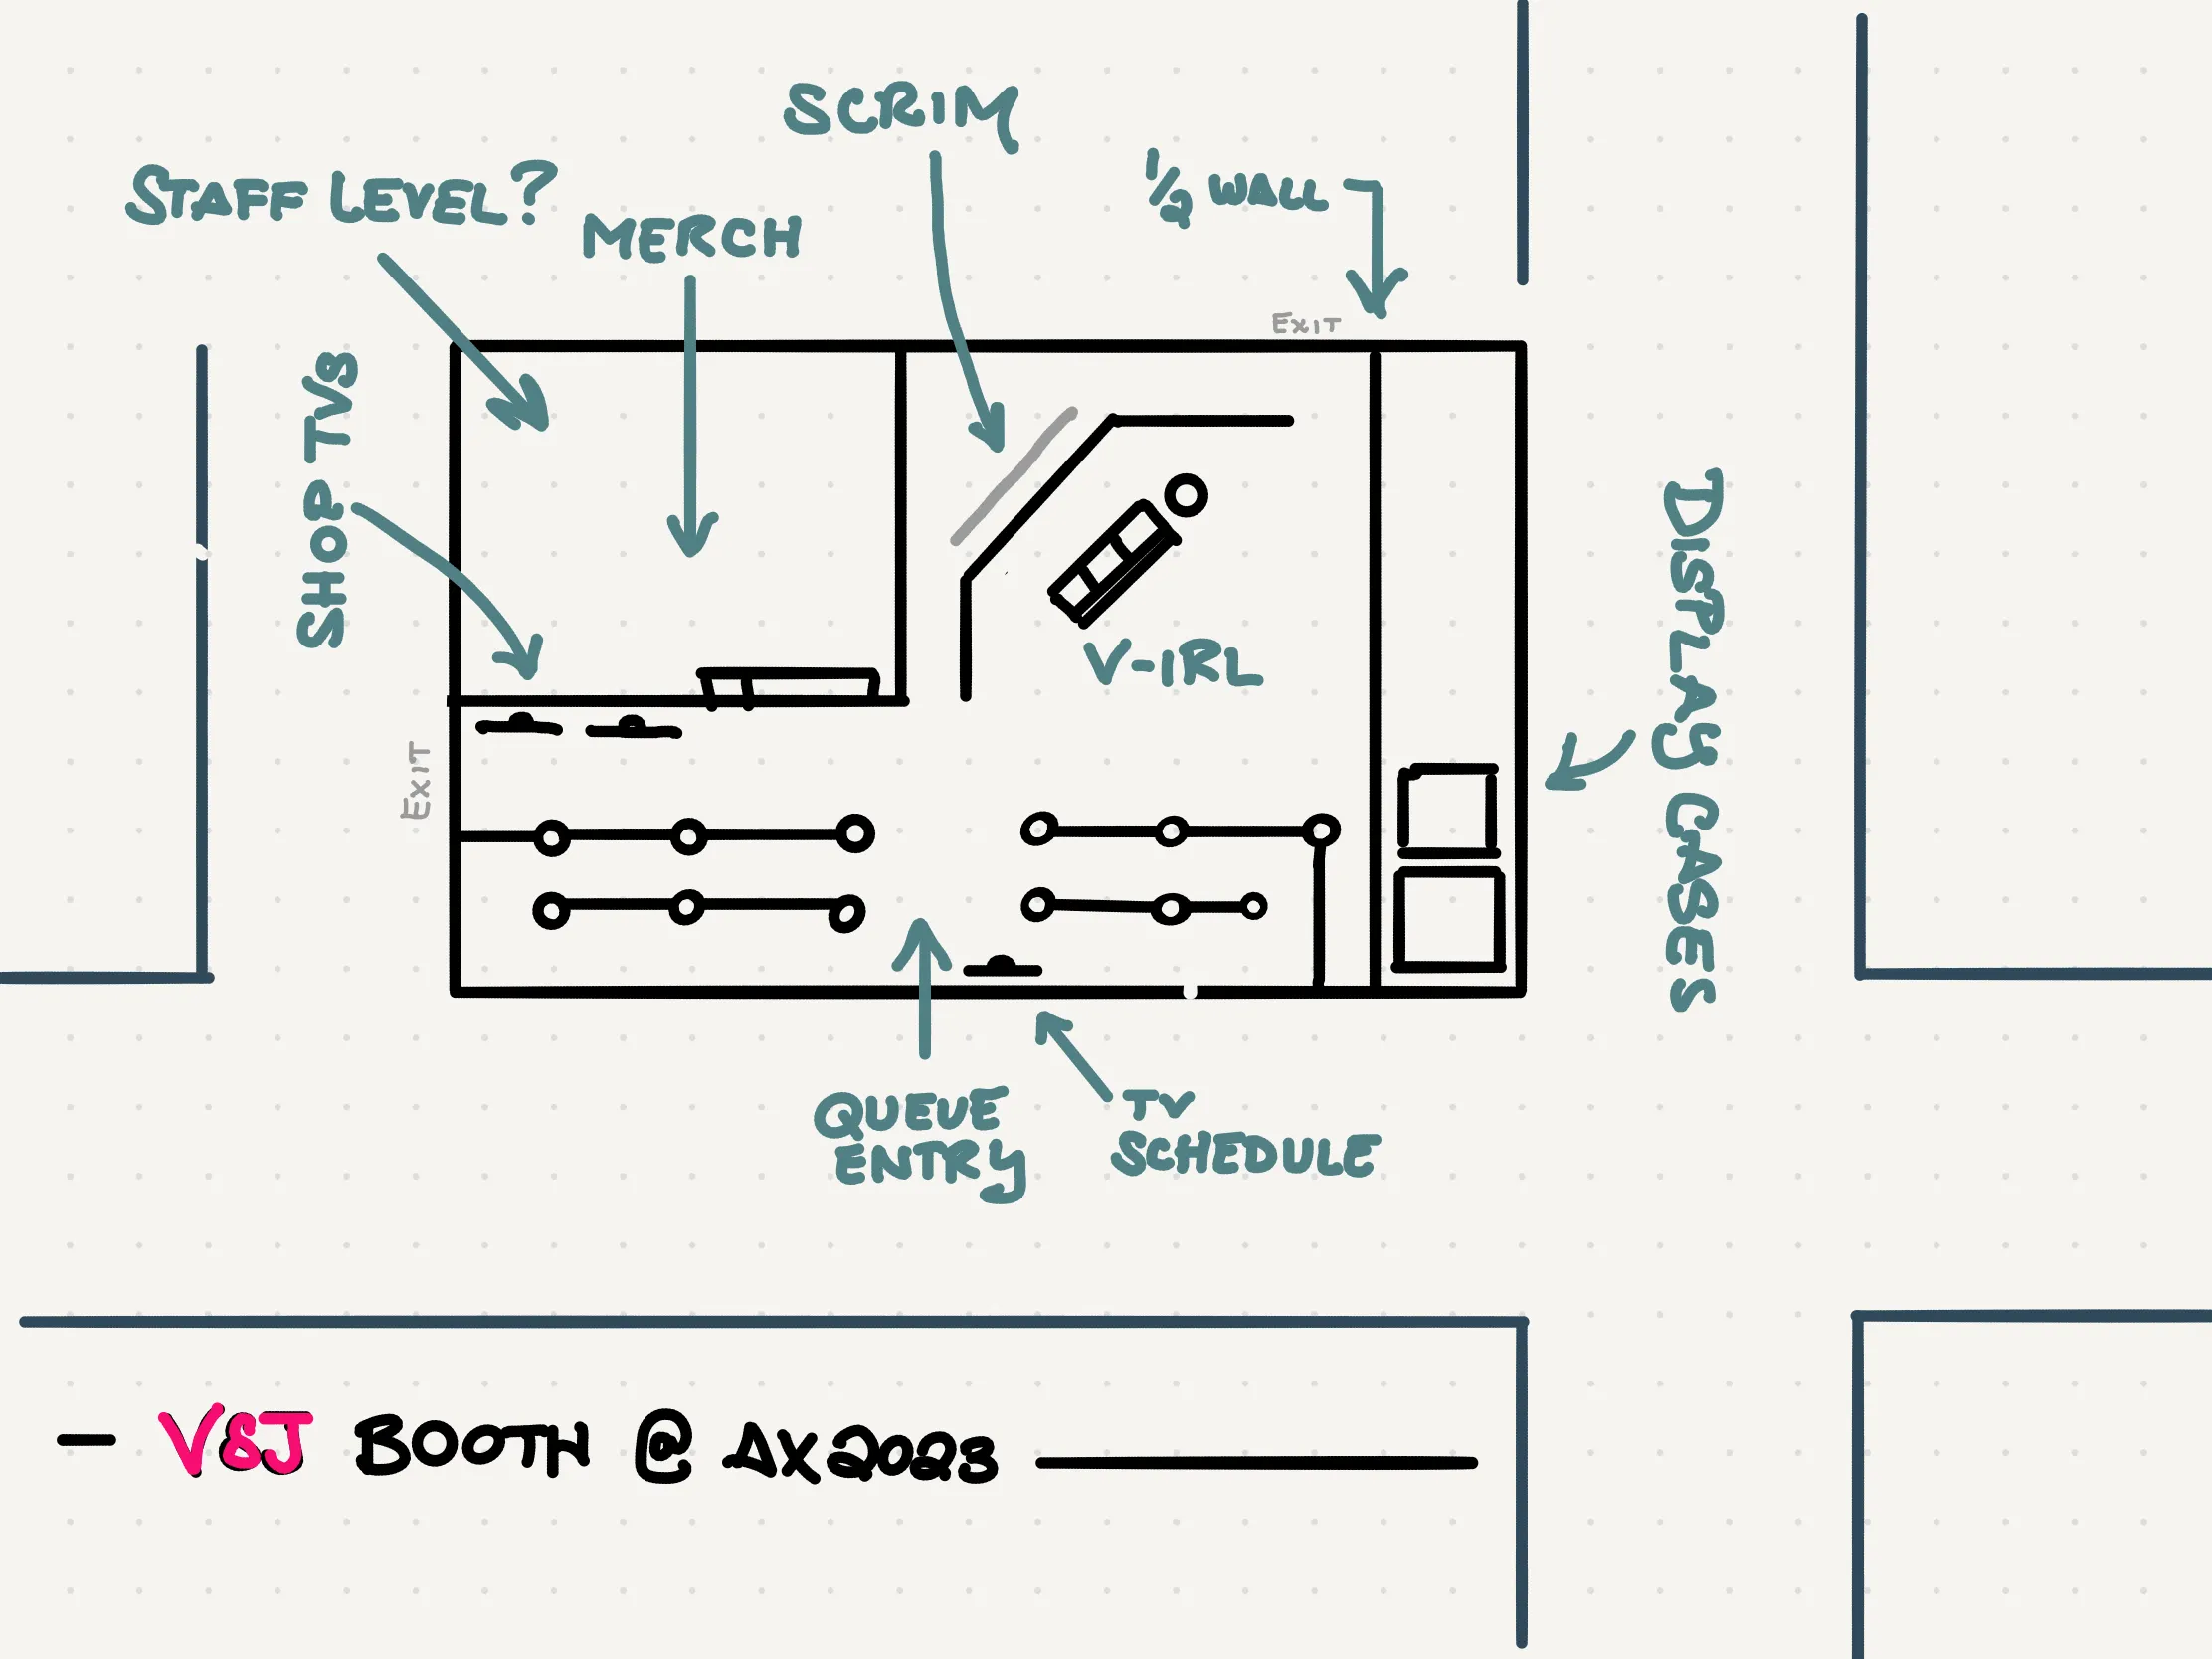 SCRIM
STAFF LEVEL?
MERCH
1/2 WALL
EXIT
SHOP TVS
DISPLAY CASES
V-IRL
EXIT
QUEUE
ENTRY
TV
SCHEDULE
— V&J BOOTH @ AX2023